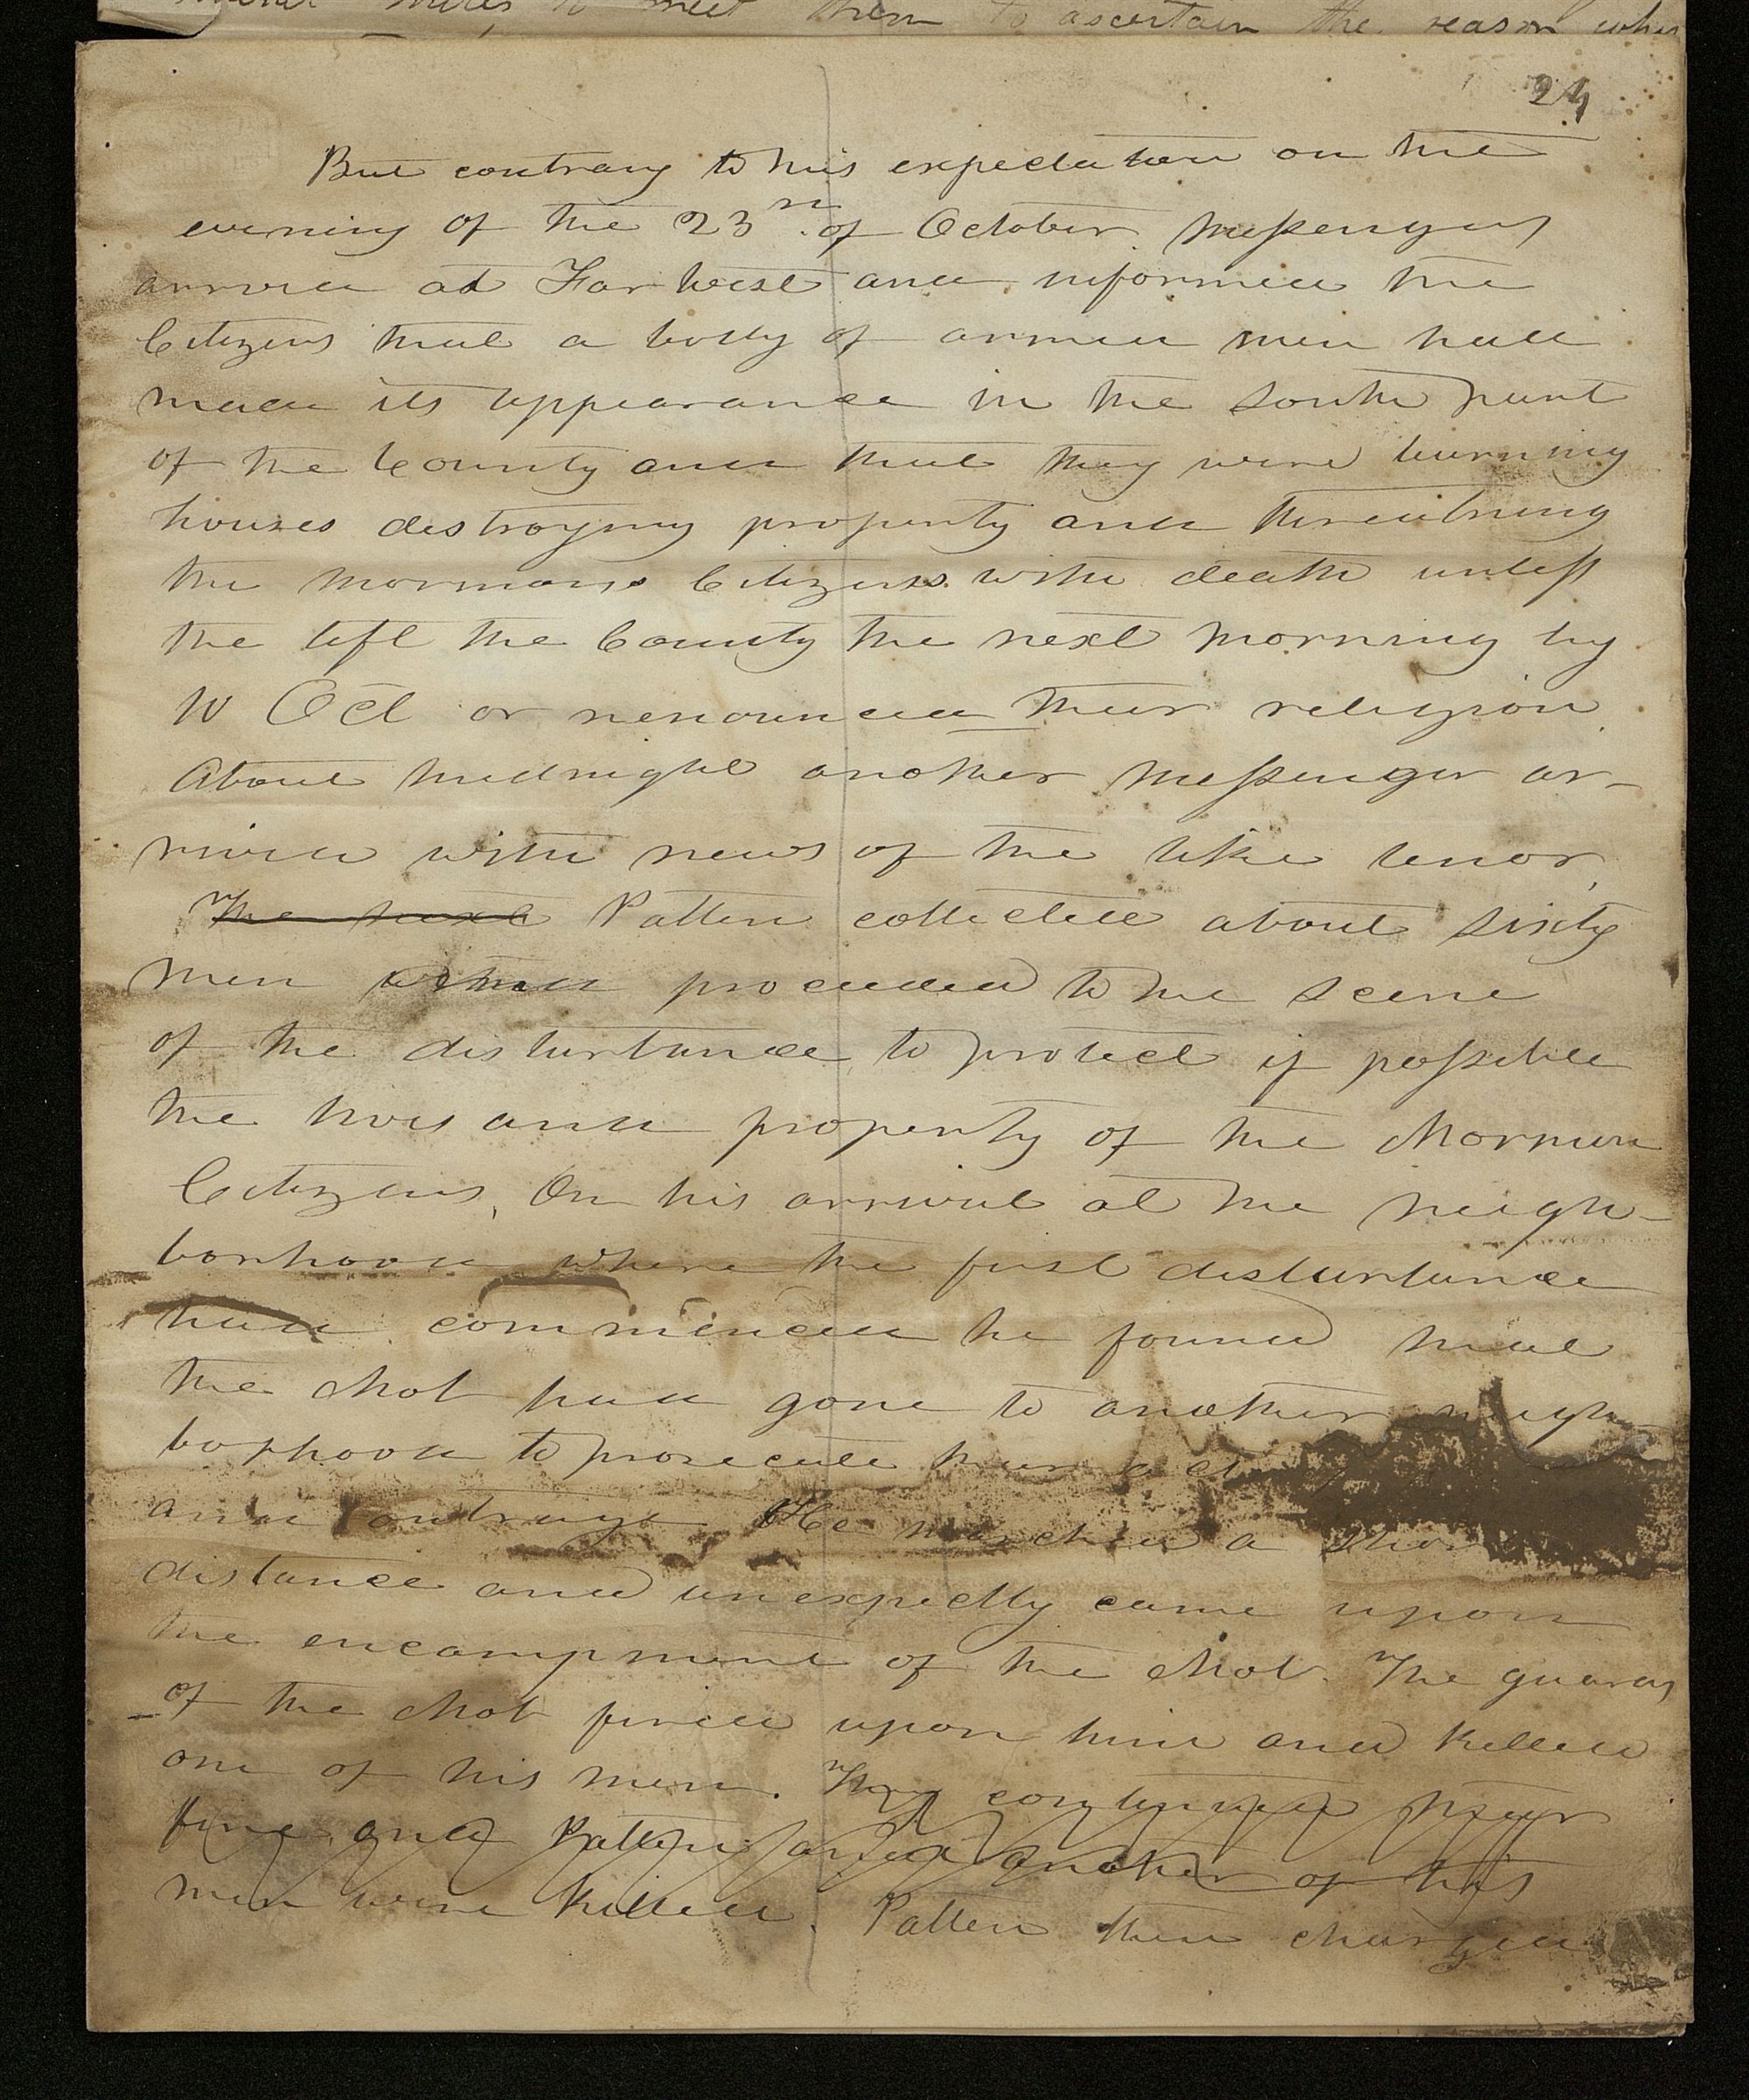 miles to meet them to ascertain the reason why
24
But contrary to his expectation on the
evening of the 23rd. of October Messengers
arrived at Far West and informed the
Citizens that a body of armed men had
made its appearance in the South part
of the County and that they were burning
houses destroying property and threatning
the Mormons Citizens with death unless
the left the County the next morning by
10 Ocl or renounced their religion.
About midnight another Messenger ar-
rived with news of the like tenor,
The next Patten collected about Sixty
men proceeded to the Scene
of the disturbance to protect if possible
the lives and property of the Mormon
Citizens, On his arrival at the neigh-
borhood where the first disturbance
had commenced he found that
the Mob had gone to another neigh-
borhood to prosecute their
and outrage He marched a
distance and unexpectly came upon
the encampment of the Mob. The guards
of the Mob fired upon him and killed
one of his men. They continued their
fire and Patten and another of his
men were killed. Patten then charged